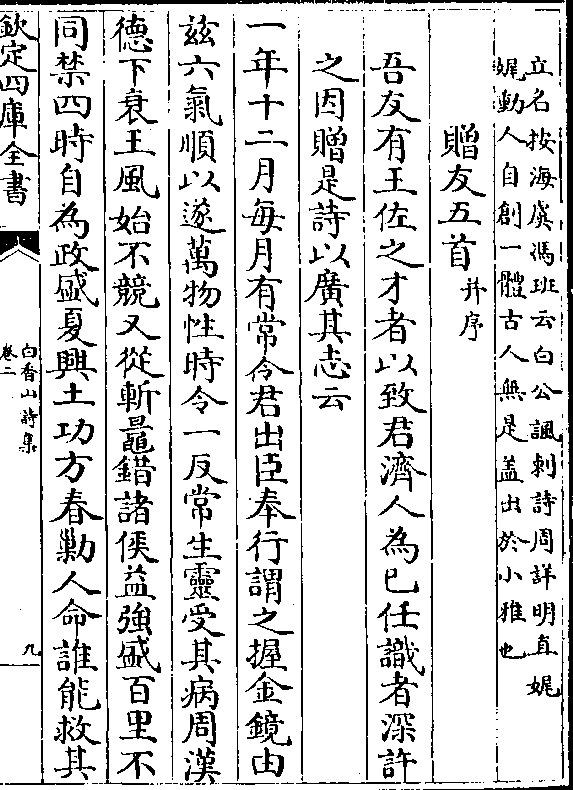 立名按海虞馮班云白公諷刺詩周詳明直娓
娓動人自創一體古人無是蓋出於小雅也
贈友五首并序
吾友有王佐之才者以致君濟人為已任識者深許
之因贈是詩以廣其志云
一年十二月每月有常令君出臣奉行謂之握金鏡由
兹六氣順以遂萬物性時令一反常生靈受其病周漢
德下衰王風始不競又從斬鼂錯諸侯益強盛百里不
同禁四時自為政盛夏興土功方春勦人命誰能救其
欽定四庫全書
白香山詩集
卷二
九